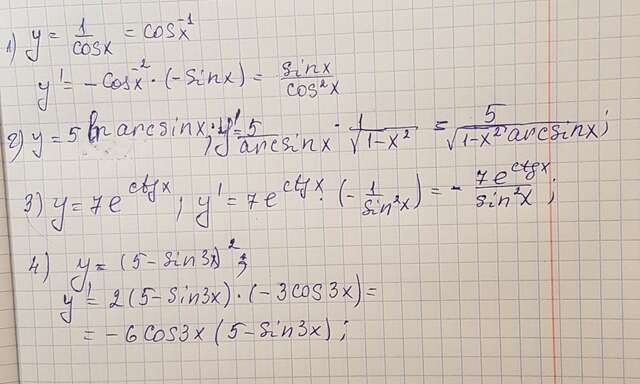 1) y = 1/cosx = cosx⁻¹
y' = -cosx⁻² · (-sinx) = sinx/cos²x
2) y = 5 ln arcsinx; y' = 5/arcsinx · 1/√(1-x²) = 5/(√(1-x²) arcsinx);
3) y = 7e^(ctgx); y' = 7e^(ctgx) · (-1/sin²x) = -7e^(ctgx)/sin²x;
4) y = (5-sin3x)²;
y' = 2(5-sin3x)·(-3cos3x) =
= -6cos3x(5-sin3x);